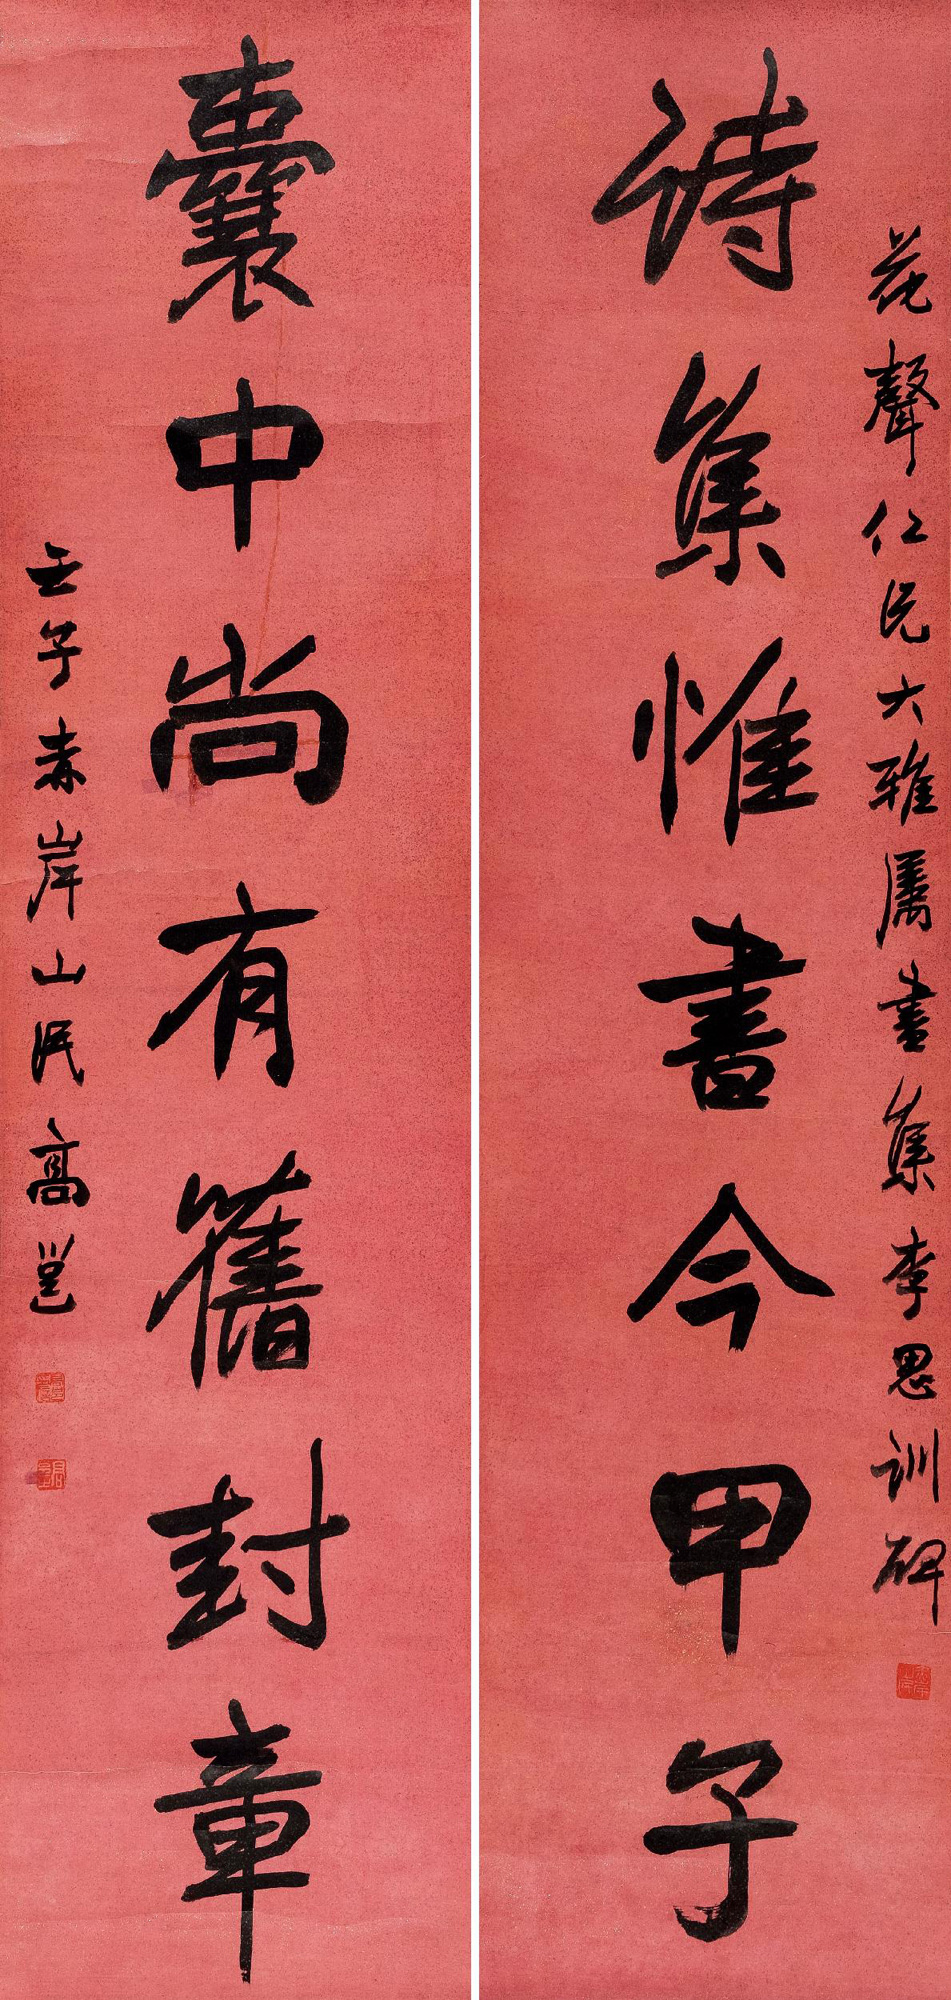 花聲仁兄大雅屬書集李思訓碑
詩集惟書今甲子
囊中尚有舊封章
壬子赤岸山民高邕